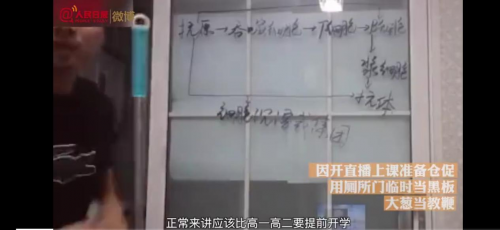 人民直播|微博
抗原→吞噬细胞→T细胞→B细胞
浆细胞
抗体
因开直播上课准备仓促
用厕所门临时当黑板
大葱当教鞭
正常来讲应该比高一高二要提前开学